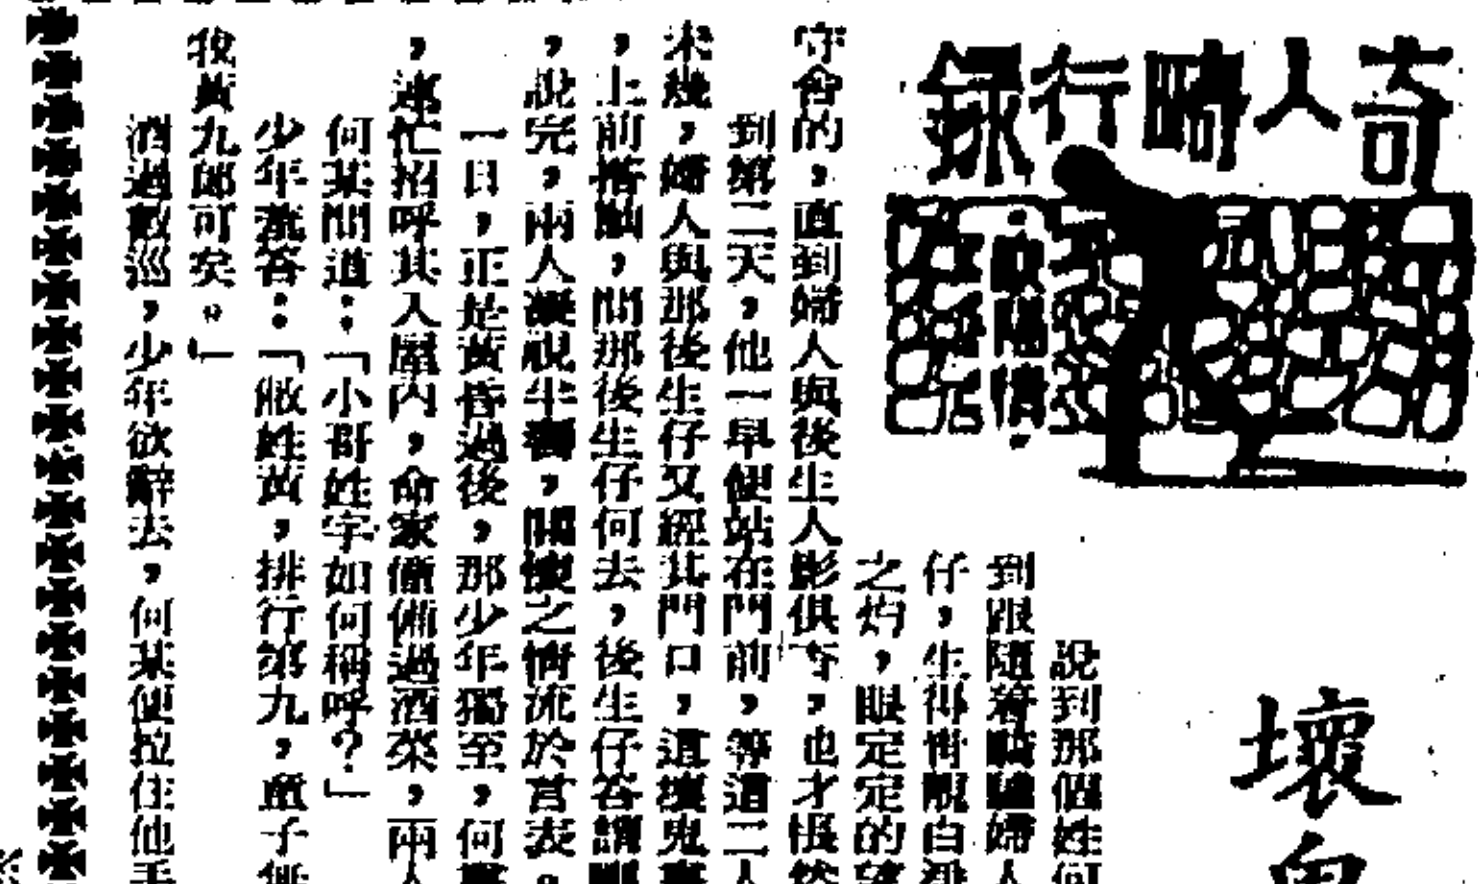 奇人畸行錄
歐陽情
壞鬼
說到那個姓何
到跟隨著騎驢婦人
仔，生得俏靚白淨
之灼，眼定定的望
守舍的，直到婦人與後生人影俱杳，也才悵然
到第二天，他一早便站在門前，等這二人
未幾，婦人與那後生仔又經其門口，這壞鬼書
，上前搭訕，問那後生仔何去，後生仔答謂
，說完，兩人凝視半響，關懷之情流於言表。
一日，正是黃昏過後，那少年獨至，何
，連忙招呼其入屋內，命家僮備過酒菜，兩人
何某問道：「小哥姓字如何稱呼？」
少年羞答：「敝姓黃，排行第九，童子無
我黃九郎可矣。」
酒過數巡，少年欲辭去，何某便拉住他手